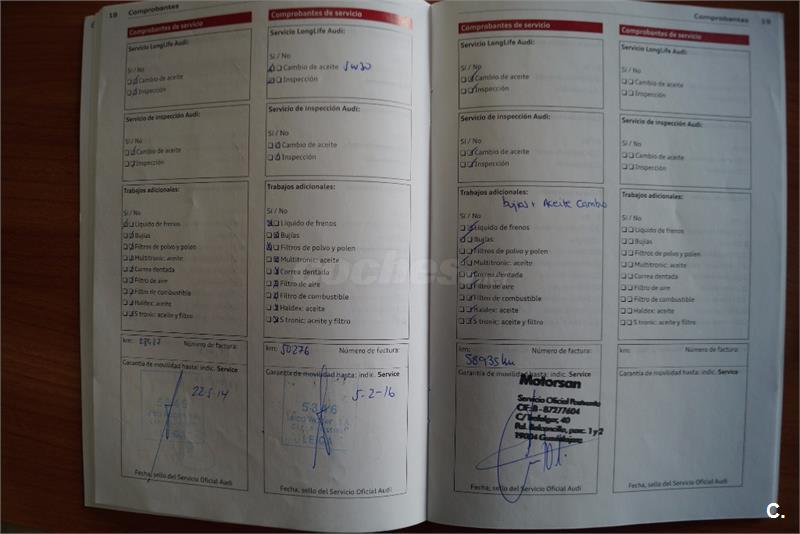 18 Comprobantes
Comprobantes de servicio
Servicio LongLife Audi:
Sí / No
Cambio de aceite
Inspección
Servicio de inspección Audi:
Sí / No
Cambio de aceite
Inspección
Trabajos adicionales:
Sí / No
Líquido de frenos
Bujías
Filtros de polvo y polen
Multitronic: aceite
Correa dentada
Filtro de aire
Filtro de combustible
Haldex: aceite
S tronic: aceite y filtro
km: Número de factura:
Garantía de movilidad hasta: indic. Service
22-5-14
Fecha, sello del Servicio Oficial Audi
Comprobantes de servicio
Servicio LongLife Audi:
Sí / No
Cambio de aceite 5W30
Inspección
Servicio de inspección Audi:
Sí / No
Cambio de aceite
Inspección
Trabajos adicionales:
Sí / No
Líquido de frenos
Bujías
Filtros de polvo y polen
Multitronic: aceite
Correa dentada
Filtro de aire
Filtro de combustible
Haldex: aceite
S tronic: aceite y filtro
km: 50276 Número de factura:
Garantía de movilidad hasta: indic. Service
5-2-16
Fecha, sello del Servicio Oficial Audi
Comprobantes 19
Comprobantes de servicio
Servicio LongLife Audi:
Sí / No
Cambio de aceite
Inspección
Servicio de inspección Audi:
Sí / No
Cambio de aceite
Inspección
Trabajos adicionales:
bujias + Aceite Cambio
Sí / No
Líquido de frenos
Bujías
Filtros de polvo y polen
Multitronic: aceite
Correa dentada
Filtro de aire
Filtro de combustible
Haldex: aceite
S tronic: aceite y filtro
km: Número de factura:
58935km
Garantía de movilidad hasta: indic. Service
Motorsan
Servicio Oficial Postventa
CIF: B - 87277604
C/ Trafalgar, 40
Pol. Balconcillo, parc. 1 y 2
19004 Guadalajara
Fecha, sello del Servicio Oficial Audi
Comprobantes de servicio
Servicio LongLife Audi:
Sí / No
Cambio de aceite
Inspección
Servicio de inspección Audi:
Sí / No
Cambio de aceite
Inspección
Trabajos adicionales:
Sí / No
Líquido de frenos
Bujías
Filtros de polvo y polen
Multitronic: aceite
Correa dentada
Filtro de aire
Filtro de combustible
Haldex: aceite
S tronic: aceite y filtro
km: Número de factura:
Garantía de movilidad hasta: indic. Service
Fecha, sello del Servicio Oficial Audi
C.